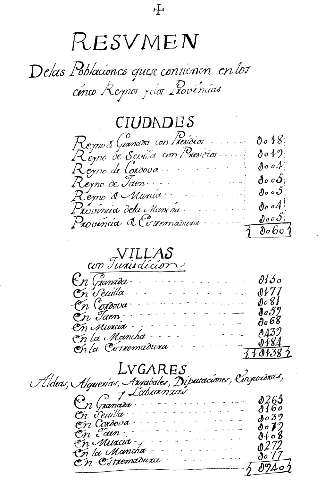 RESVMEN
De las Poblaciones que se contienen en los
cinco Reynos y dos Provincias
CIUDADES
Reyno d Granada con Presidios 0018
Reyno de Sevilla con Presidios 0019
Reyno de Cordova 0004
Reyno de Jaen 0005
Reyno d Murcia 0005
Provincia de la Mancha 0004
Provincia d Extremadura 0005
0060
VILLAS
con Jurisdicion
En Granada 0130
en Sevilla 0177
en Cordova 0081
en Jaen 0059
en Murcia 0068
en la Mancha 0439
en la Extremadura 0184
1138
LVGARES
Aldeas, Alquerias, Arrabales, Diputaciones,
y
En Granada 0265
en Sevilla 0160
en Cordova 0039
en Jaen 0079
en Murcia 0108
en la Mancha 0272
en Extremadura 0017
0940